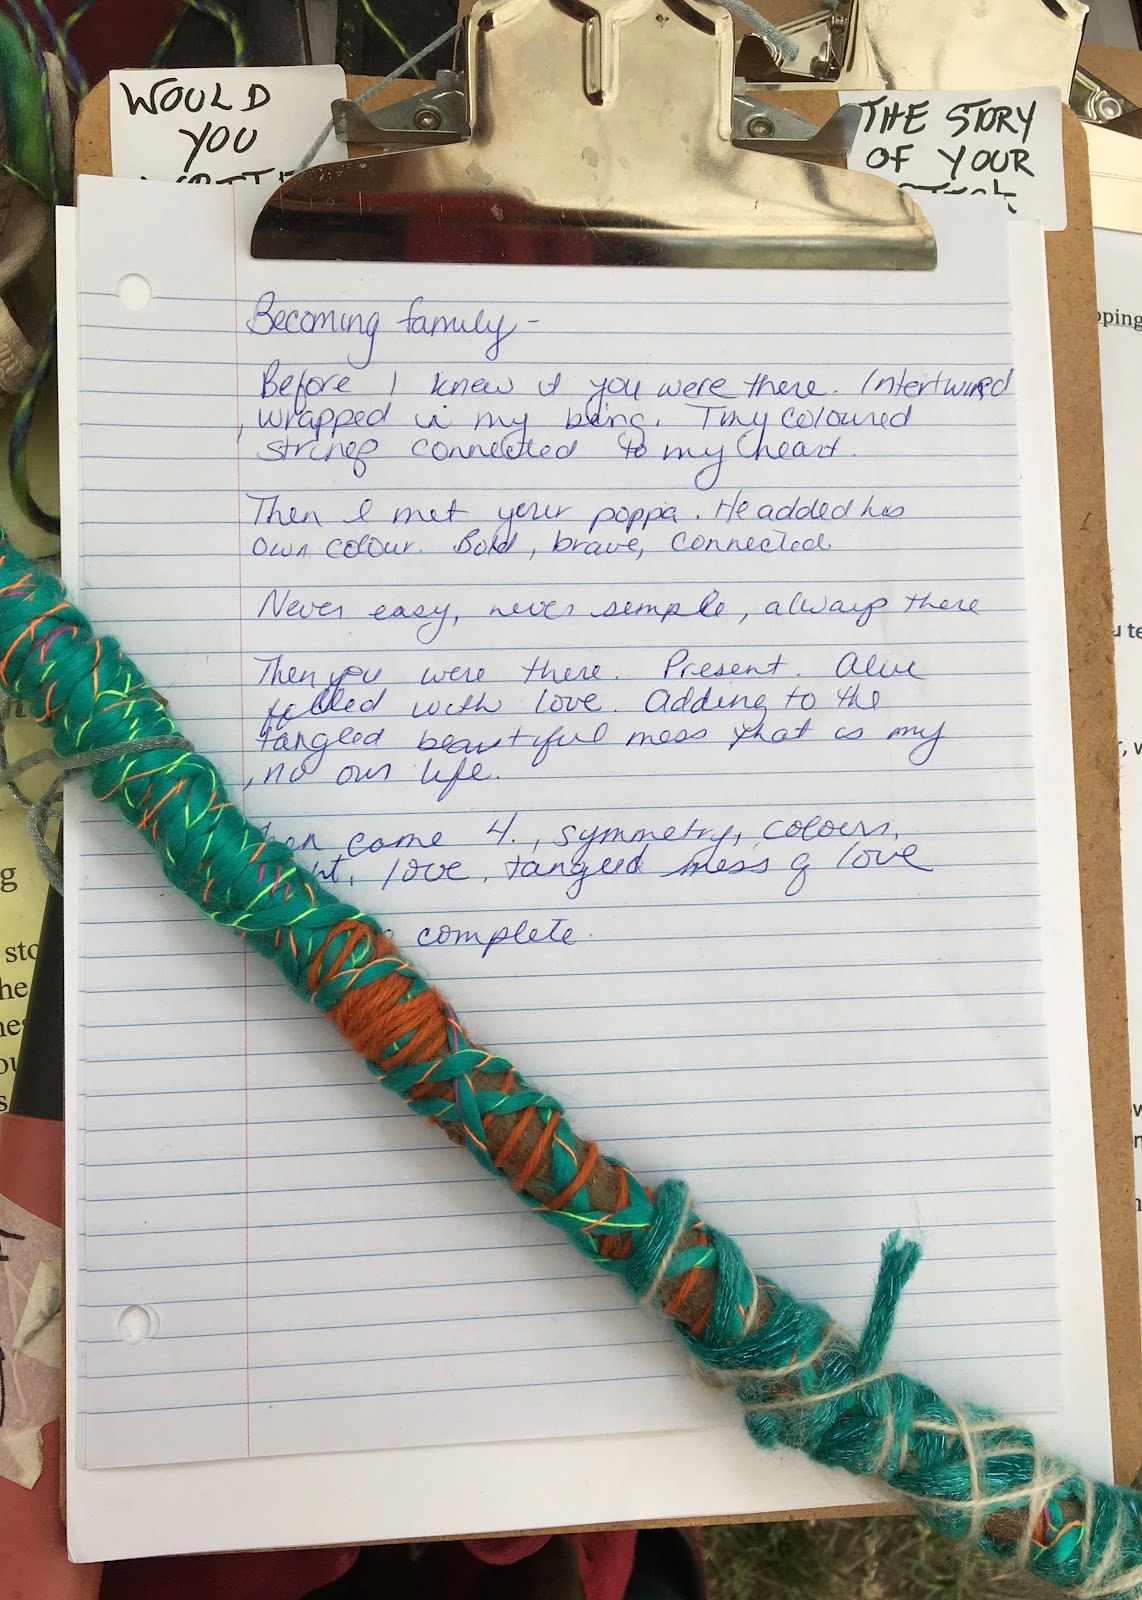 WOULD
YOU
WRITE
THE STORY
OF YOUR
STICK
Becoming family -
Before I knew it you were there. Intertwined
, wrapped in my being. Tiny coloured
strings connected to my heart.
Then I met your poppa. He added his
own colour. Bold, brave, connected
Never easy, never simple, always there
Then you were there. Present. Alive
filled with love. Adding to the
tangled beautiful mess that is my
, no our life.
came 4., symmetry, colours,
love, tangled mess of love
complete.
pping
u te
g
sto